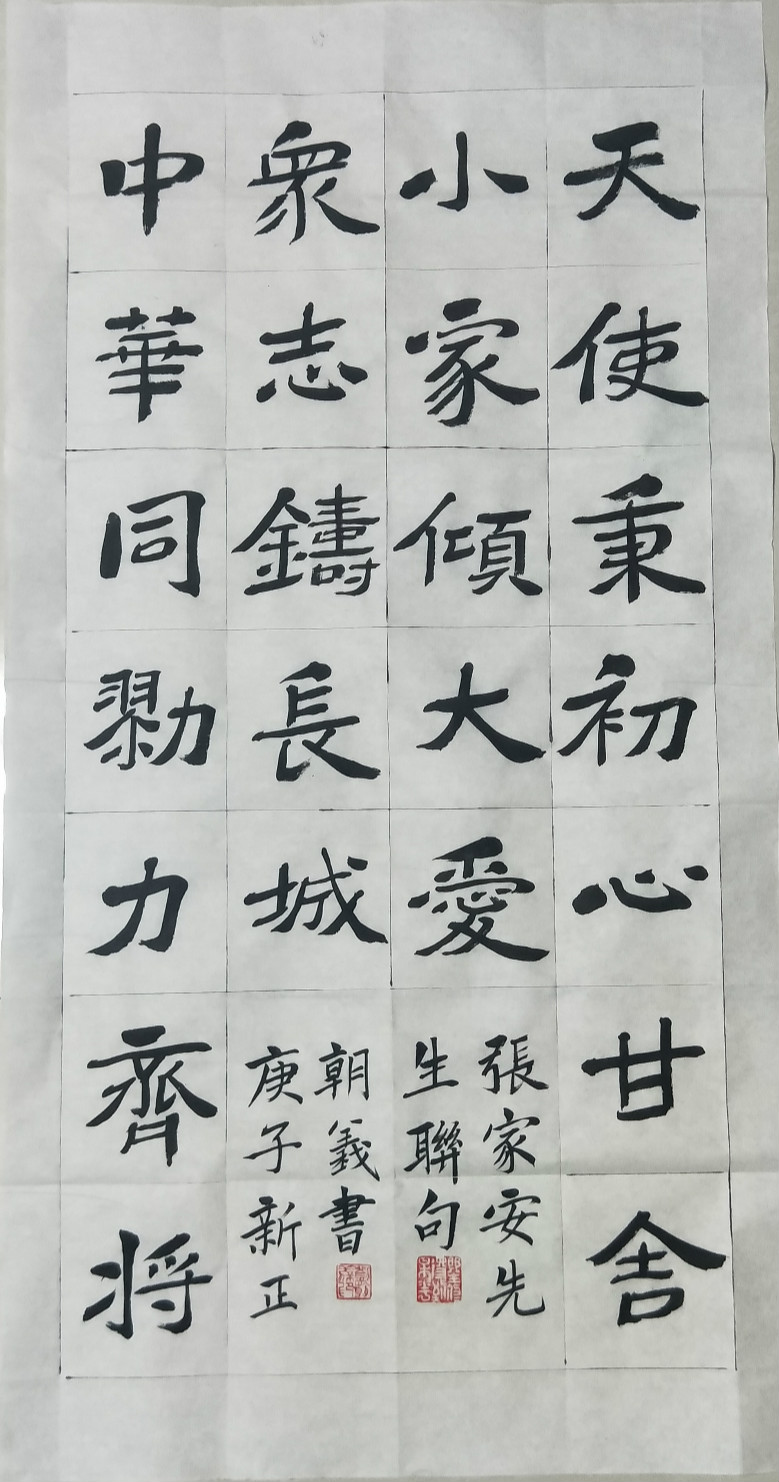 天使秉初心甘舍
小家傾大愛
張家安先
生聯句
中華同勠力齊将
衆志鑄長城
庚子新正
朝義書